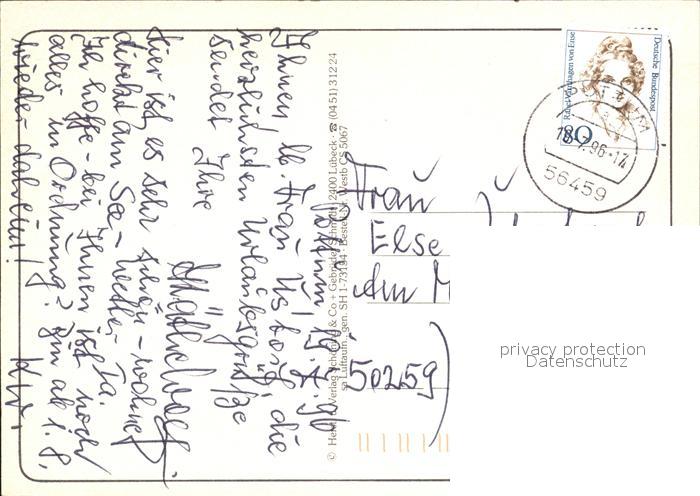 Rothum 19.7.96
Ihnen lb. Frau Ustorf, die
herzlichsten Urlaubsgrüße
sendet Ihre
Hier ist es sehr schön - wohne
direkt am See - Wetter Ia.
Ich hoffe - bei Ihnen ist noch
alles in Ordnung? Bin ab 1.8.
wieder daheim!
Verlag Schöning & Co + Gebrüder Schmidt · 2400 Lübeck · ☎ (04 51) 3 12 24
Bestell-Nr. Westb CS 5067
Frau
Else
Am
50259
Deutsche Bundespost
Rahel Varnhagen von Ense
80
18.7.96-17
56459
privacy protection
Datenschutz